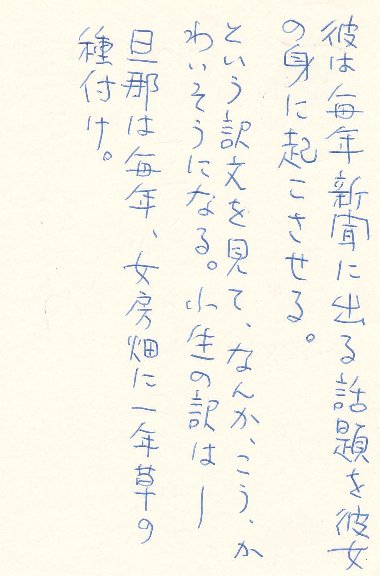 彼は毎年新聞に出る話題を彼女
の身に起こさせる。
という訳文を見て、なんか、こう、か
わいそうになる。小生の訳は―
旦那は毎年、女房畑に一年草の
種付け。